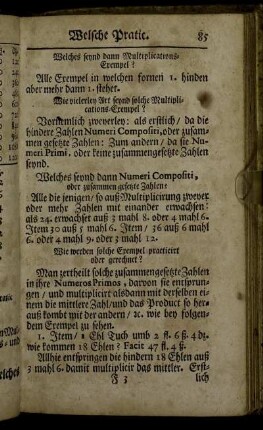 Welsche Pratic. 85
Welches seynd dann Multiplications-
Exempel?
Alle Exempel in welchen fornen 1. hinden
aber mehr dann 1. stehet.
Wie vielerley Art seynd solche Multipli-
cations-Exempel?
Vornemlich zweyerley: als erstlich / da die
hindere Zahlen Numeri Compositi, oder zusam-
men gesetzte Zahlen: Zum andern / da sie Nu-
meri Primi, oder keine zusammengesetzte Zahlen
seynd.
Welches seynd dann Numeri Compositi,
oder zusammen gesetzte Zahlen?
Alle die jenigen / so auß Multiplicirung zweyer
oder mehr Zahlen mit einander erwachsen:
als 24. erwachset auß 3 mahl 8. oder 4 mahl 6.
Item 30 auß 5 mahl 6. Item / 36 auß 6 mahl
6. oder 4 mahl 9. oder 3 mahl 12.
Wie werden solche Exempel practicirt
oder gerechnet?
Man zertheilt solche zusammengesetzte Zahlen
in ihre Numeros Primos, darvon sie entsprun-
gen / und multiplicirt alsdann mit derselben ei-
nem die mittlere Zahl / und das Product so her-
auß kombt mit der andern / ꝛc. wie bey folgen-
dem Exempel zu sehen.
1. Item / 1 Ehl Tuch umb 2 fl. 6 ß. 4 dz.
wie kommen 18 Ehlen? Facit 47 fl. 4 ß.
Allhie entspringen die hindern 18 Ehlen auß
3 mahl 6. damit multiplicir das mittler. Erst-
F 3 lich